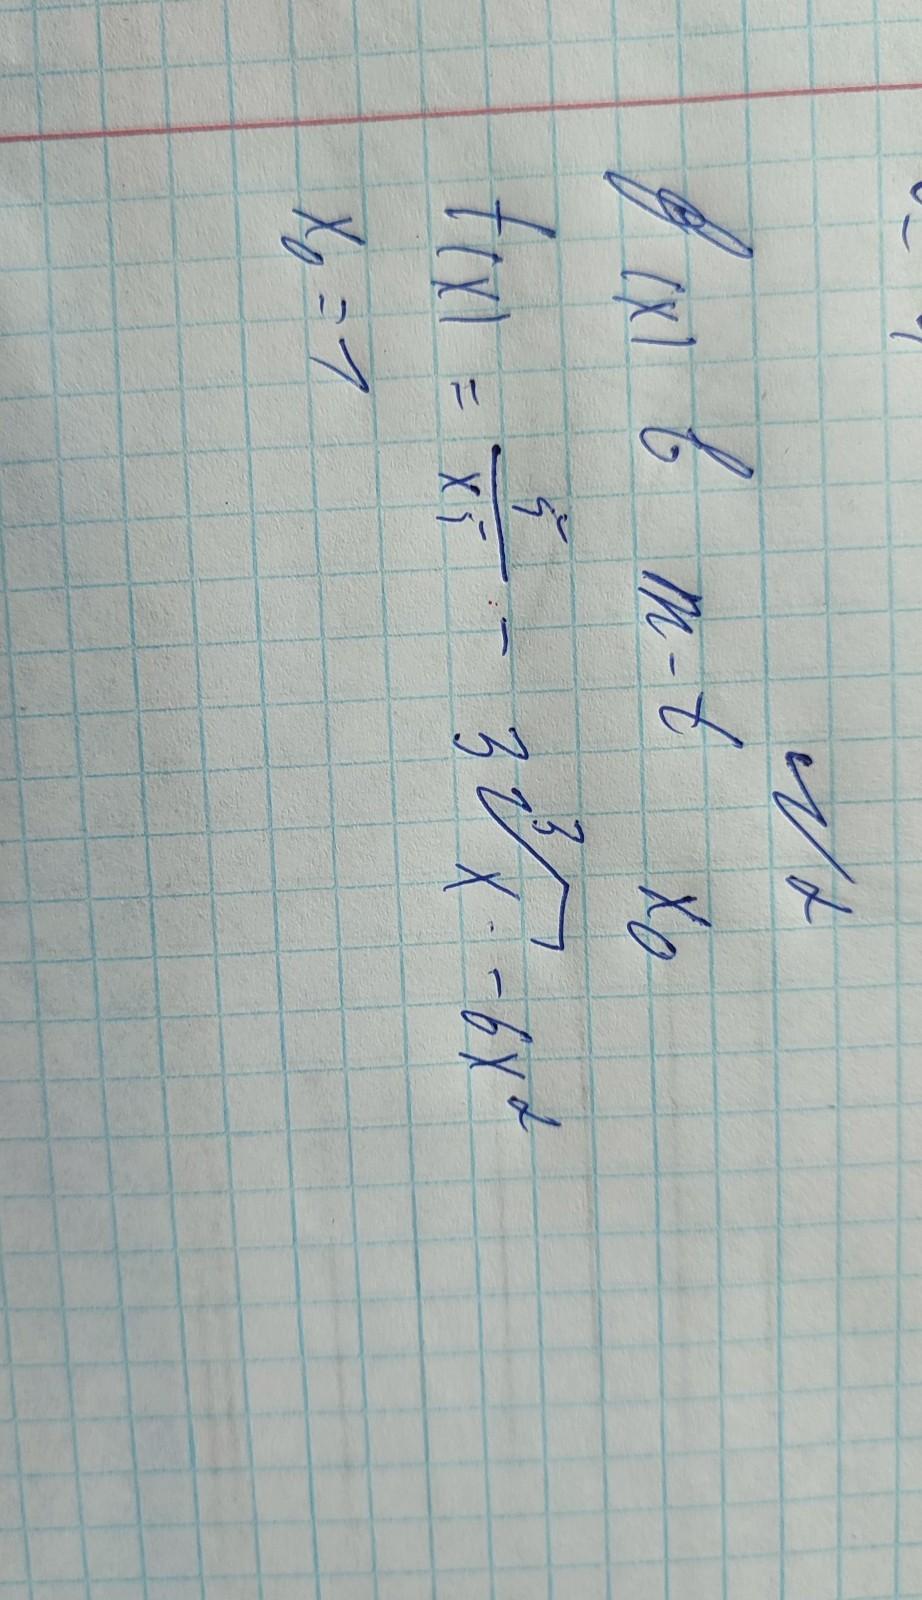 √2
f(x) в т-т x₀
f(x) = 5/x⁵ - 3∛x - 6x²
x₀ = 1